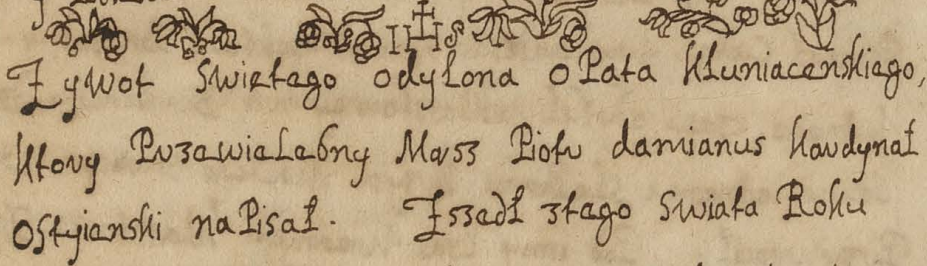 IHS
Zywot Swietego Odylona oPata Kluniacenskiego,
Ktory Przewielebny Mąsz Piotr damianus Kardynał
Ostyienski naPisał. Zszedł ztego Swiata Roku